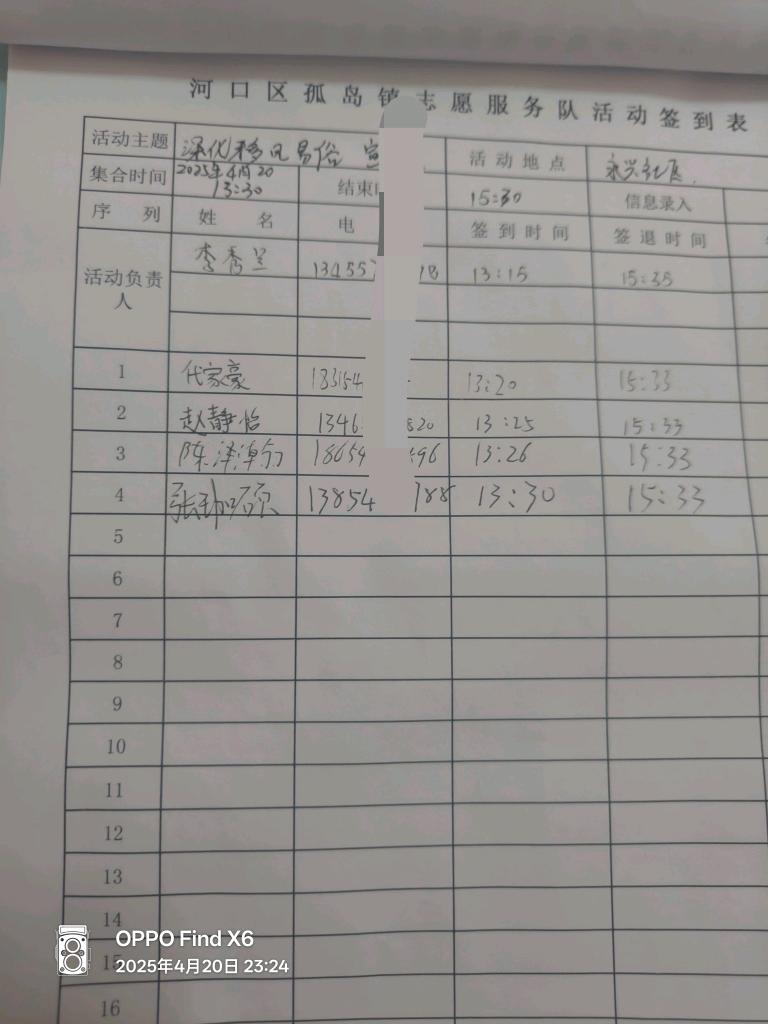 河口区孤岛镇志愿服务队活动签到表
活动主题 深化移风易俗 宣 活动地点 永兴社区.
集合时间 2025年4月20 13:30 结束 15:30 信息录入
序 列 姓 名 电 签到时间 签退时间
活动负责人 李秀兰 13455 18 13:15 15:35
1 代家豪 183154 13:20 15:33
2 赵静怡 1346 820 13:25 15:33
3 陈泽 18654 96 13:26 15:33
4 张 13854 188 13:30 15:33
5
6
7
8
9
10
11
12
13
14
15
16
OPPO Find X6
2025年4月20日 23:24